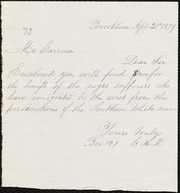 Brookline Apr 28th 1879
73
Mr Garrison
Dear Sir
Enclosed you will find for
the benefit of the negro sufferers who
have emigrated to the west from the
persecutions of the Southern White man
Yours truly
Box 121